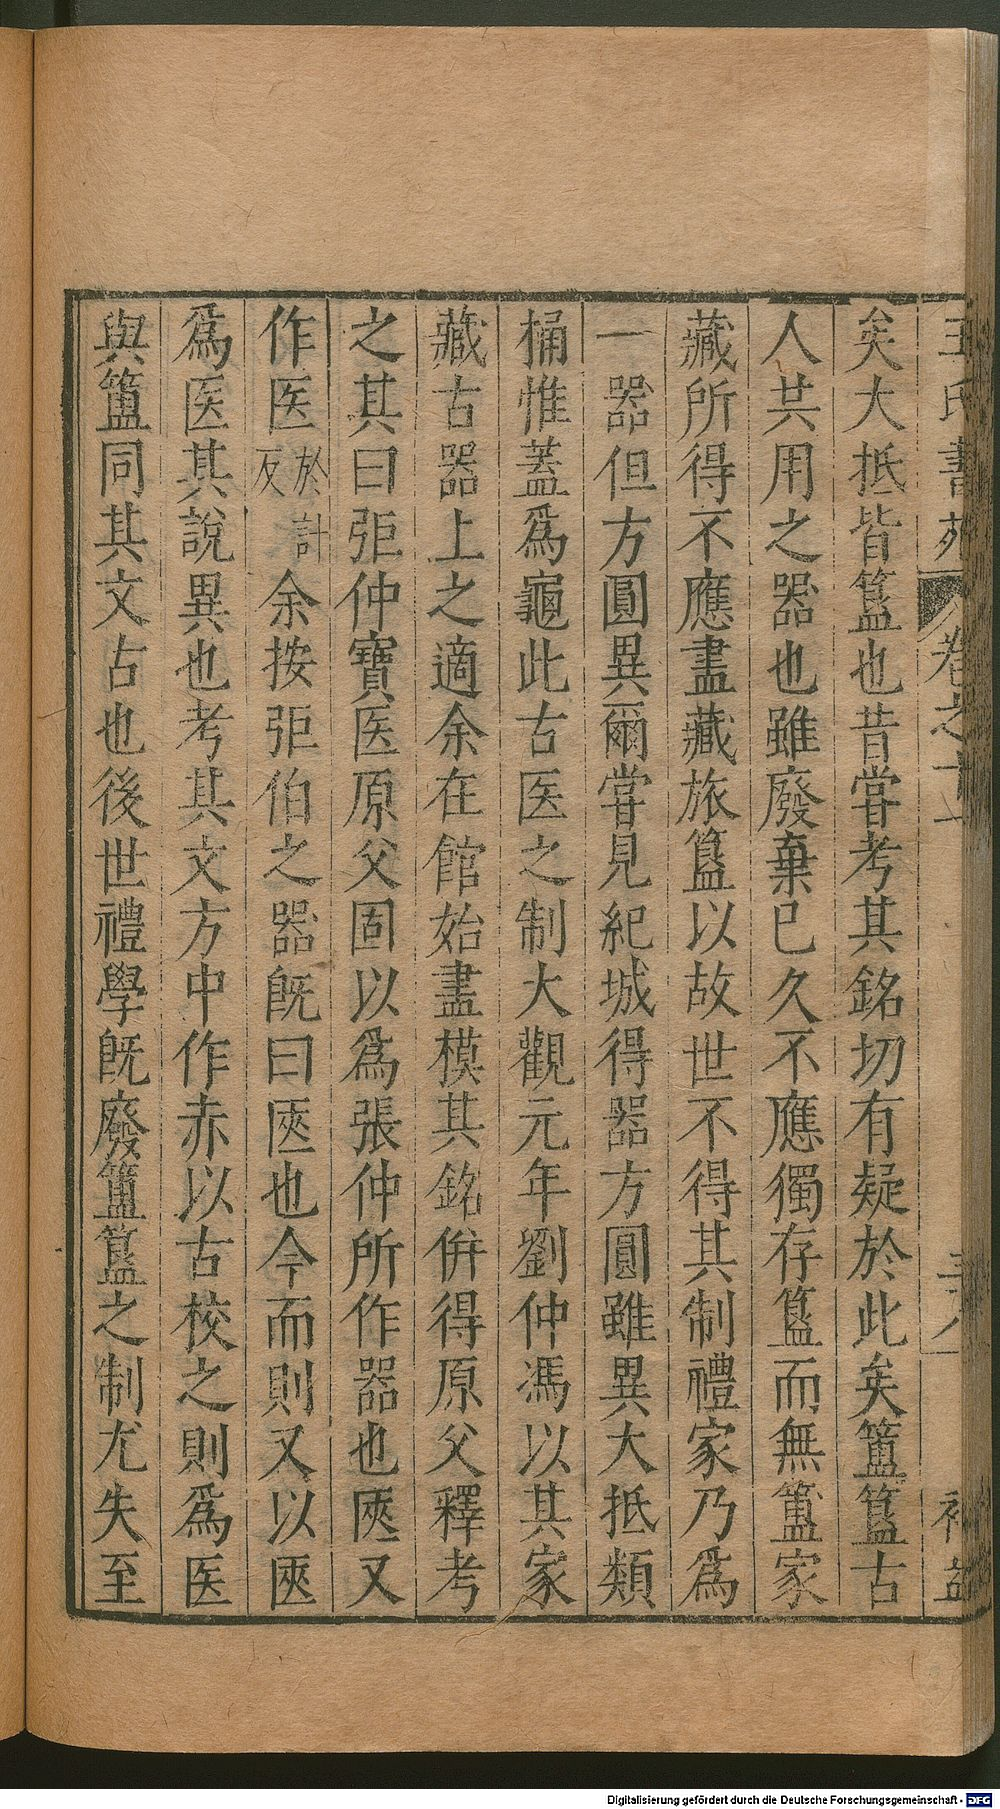 王氏書苑 卷之十一 補益
矣大抵皆簋也昔嘗考其銘切有疑於此矣簠簋古
人共用之器也雖廢棄已久不應獨存簋而無簠家
藏所得不應盡藏旅簋以故世不得其制禮家乃爲
一器但方圓異爾嘗見紀城得器方圓雖異大抵類
桶惟蓋爲龜此古医之制大觀元年劉仲馮以其家
藏古器上之適余在館始盡模其銘併得原父釋考
之其曰弡仲寶医原父固以爲張仲所作器也匧又
作医於計反余按弡伯之器旣曰匧也今而則又以匧
爲医其說異也考其文方中作赤以古校之則爲医
與簠同其文古也後世禮學旣廢簠簋之制尤失至
Digitalisierung gefördert durch die Deutsche Forschungsgemeinschaft - DFG